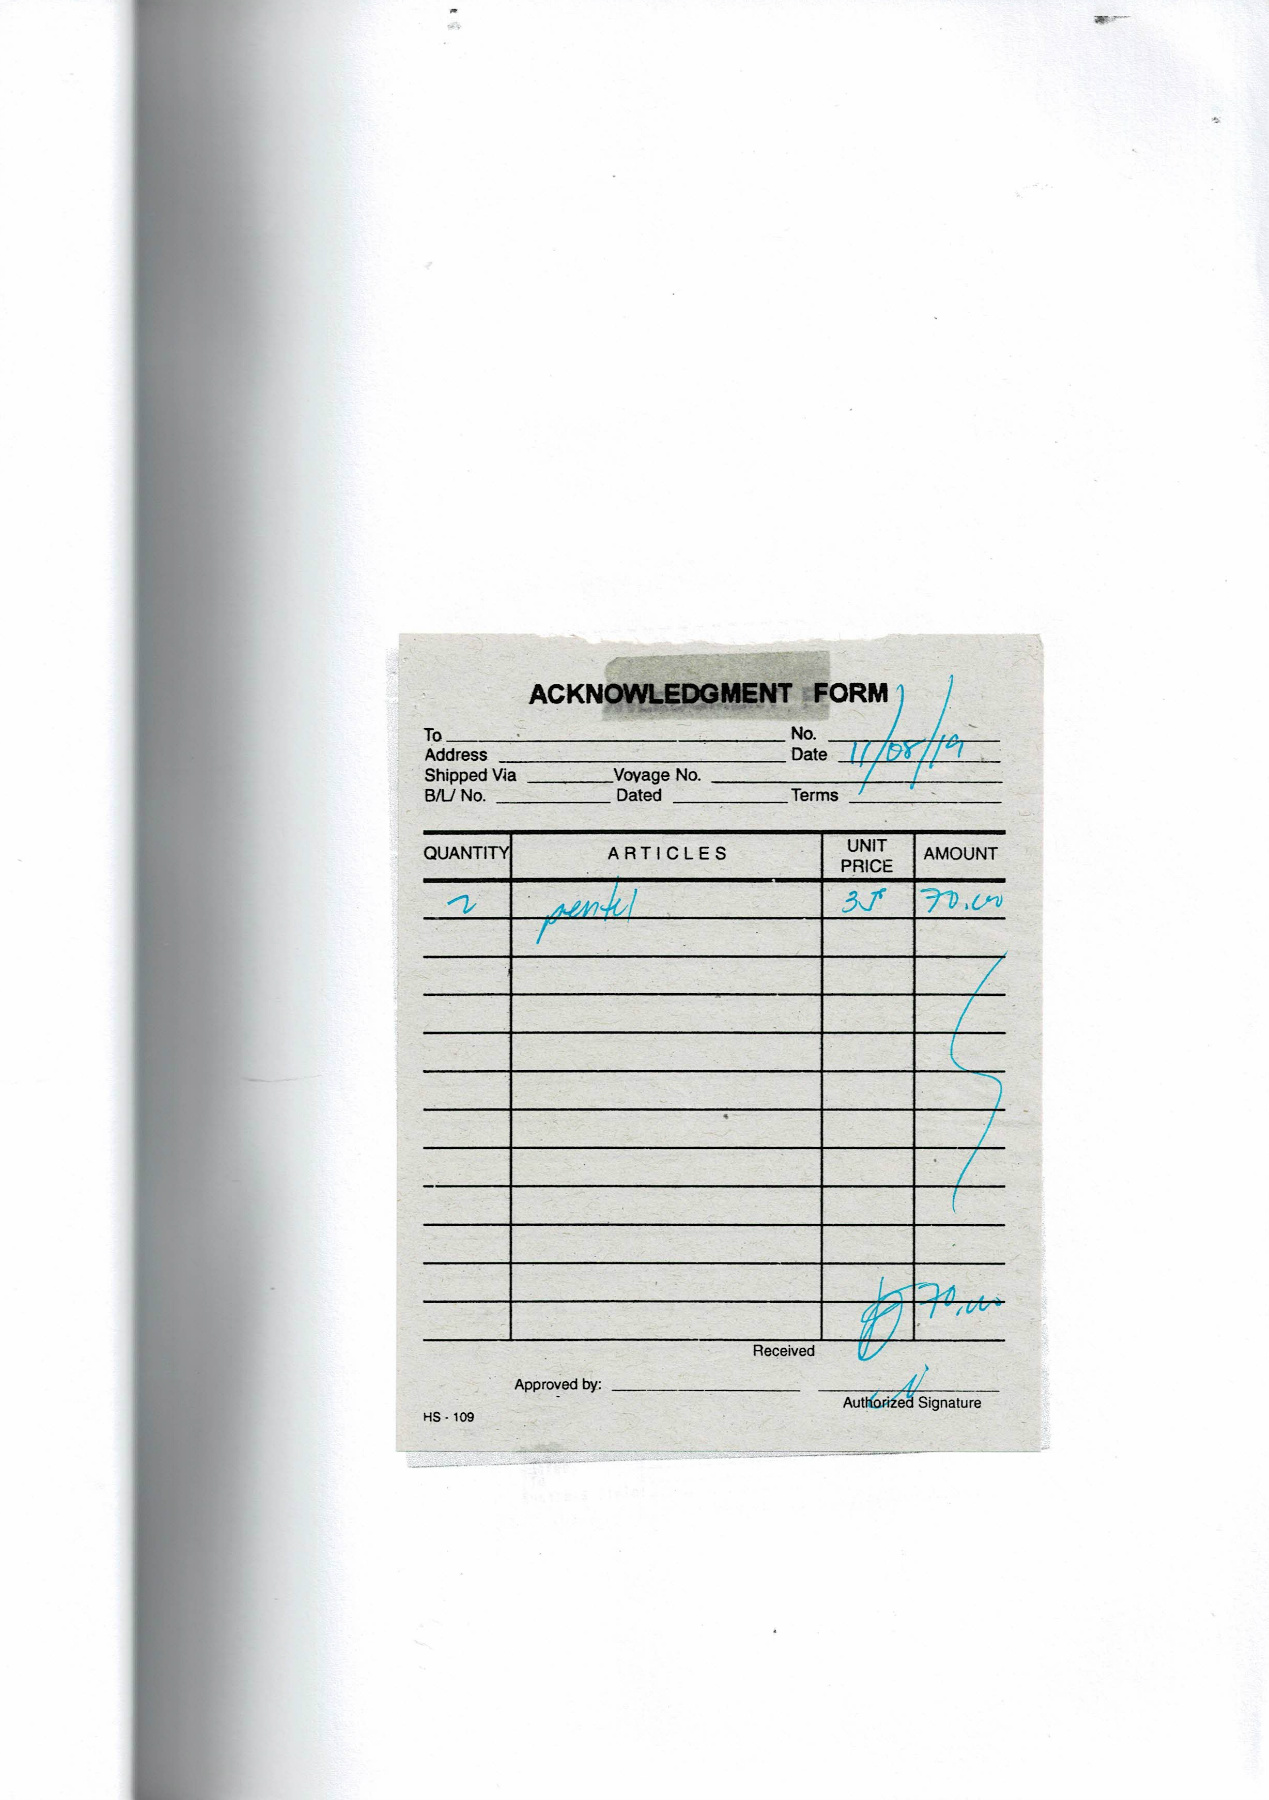 ACKNOWLEDGMENT FORM
To No.
Address Date 11/08/19
Shipped Via Voyage No.
B/L/ No. Dated Terms
QUANTITY ARTICLES UNIT PRICE AMOUNT
2 pentel 35 70.00
70.00
Received
Approved by:
Authorized Signature
HS - 109